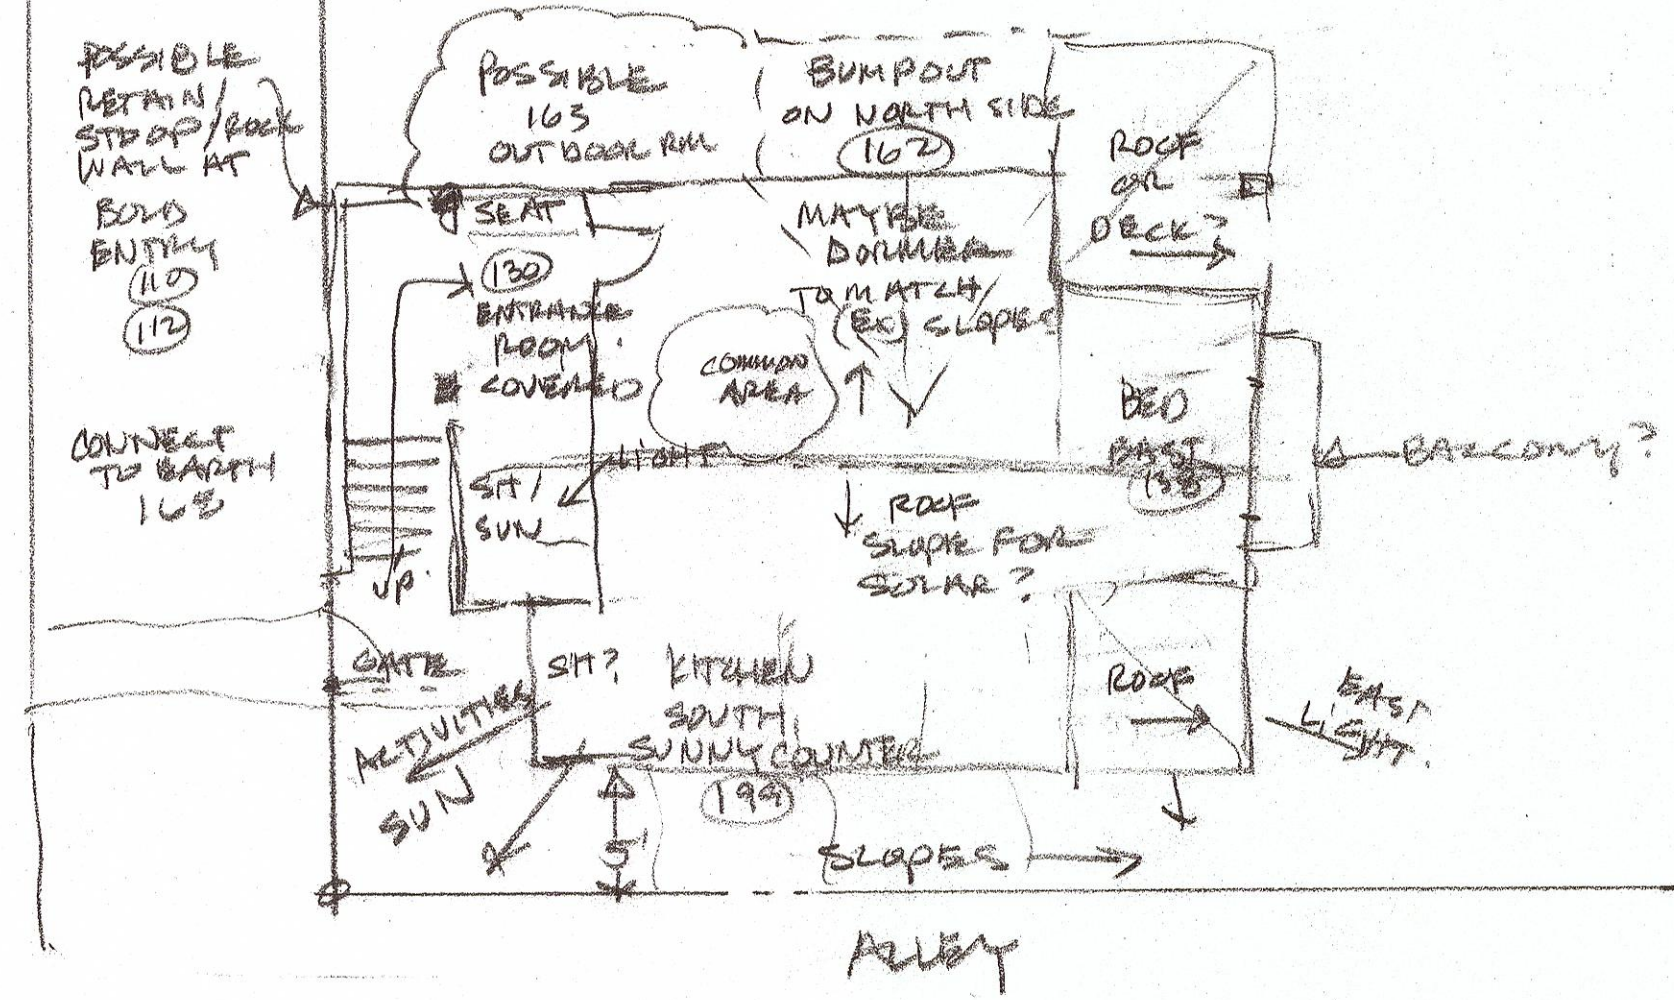 POSSIBLE
RETAIN/
STOOP/ROCK
WALL AT
BOLD
ENTRY
110
112
CONNECT
TO EARTH
168
POSSIBLE
163
OUTDOOR RM
BUMPOUT
ON NORTH SIDE
162
ROOF
OR
DECK?
SEAT
130
ENTRANCE
ROOM.
COVERED
MAYBE
DORMER
TO MATCH
(EX) SLOPES
COMMON
AREA
BED
EAST
138
BALCONY?
LIGHT
SH/
SUN
UP
ROOF
SLOPE FOR
SOLAR?
GATE
SH?
KITCHEN
SOUTH,
SUNNY COUNTER
199
ROOF
EAST
LIGHT.
ACTIVITIES
SUN
5'
SLOPES
ALLEY